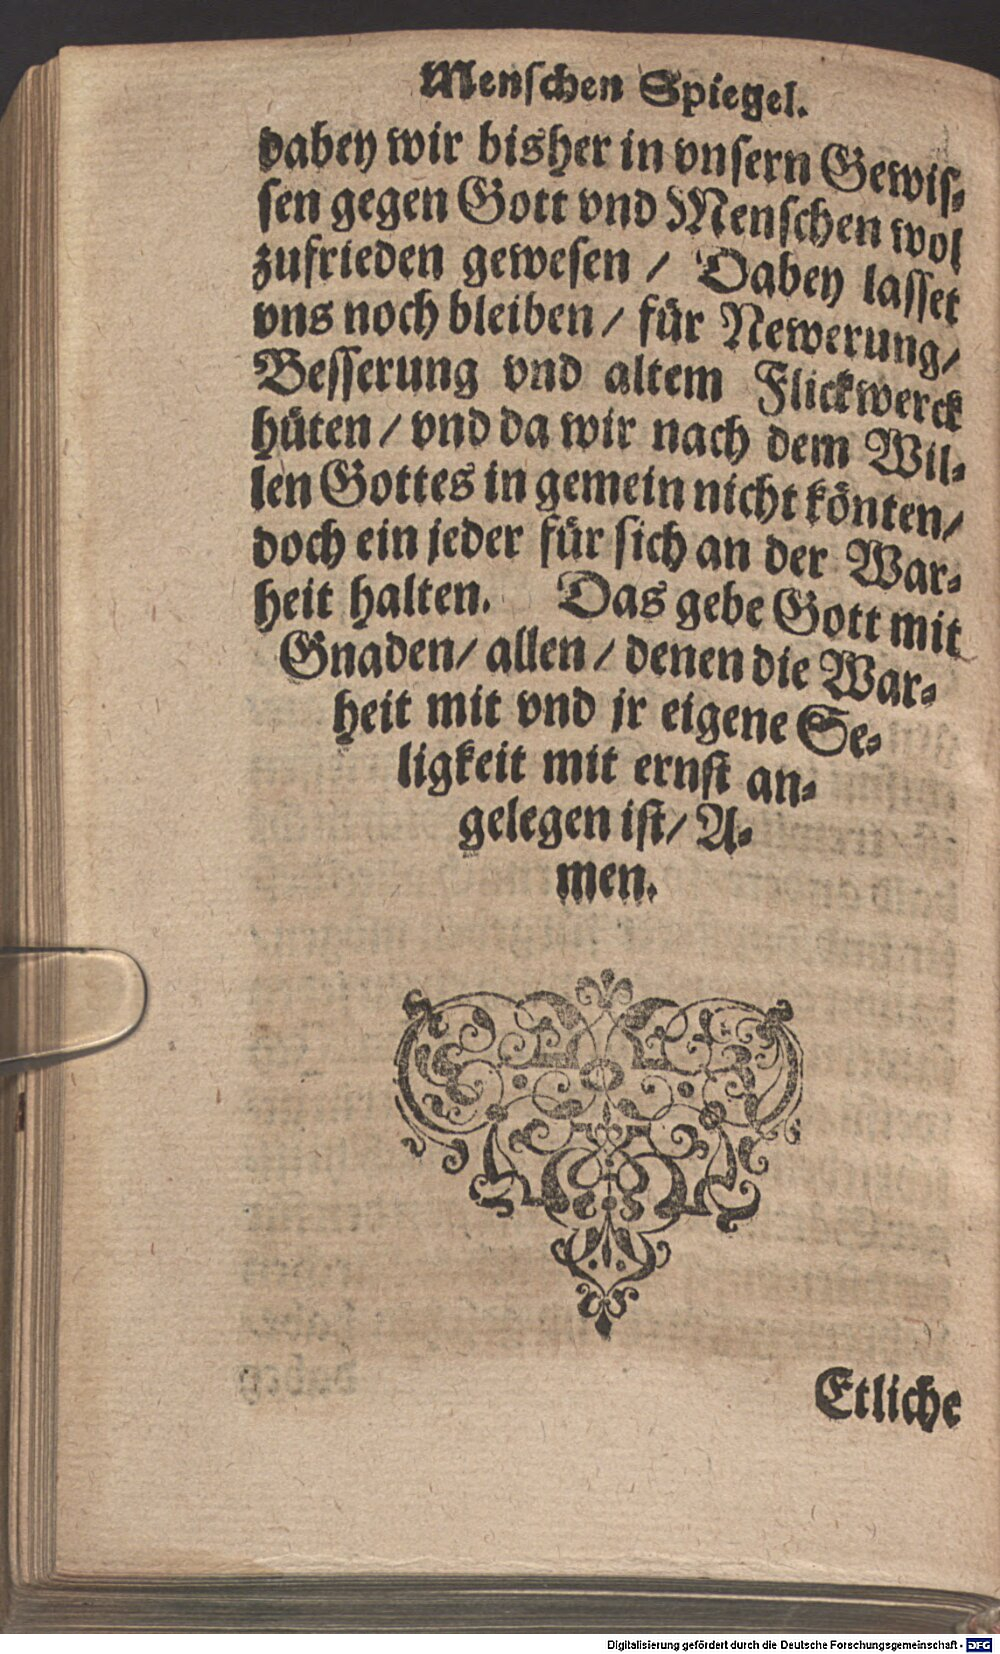 Menschen Spiegel.
dabey wir bisher in vnsern Gewis-
sen gegen Gott vnd Menschen wol
zufrieden gewesen / Dabey lasset
vns noch bleiben / für Newerung /
Besserung vnd altem Flickwerck
hüten / vnd da wir nach dem Wil-
len Gottes in gemein nicht könten /
doch ein jeder für sich an der War-
heit halten. Das gebe Gott mit
Gnaden / allen / denen die War-
heit mit vnd jr eigene Se-
ligkeit mit ernst an-
gelegen ist / A-
men.
Etliche
Digitalisierung gefördert durch die Deutsche Forschungsgemeinschaft - DFG